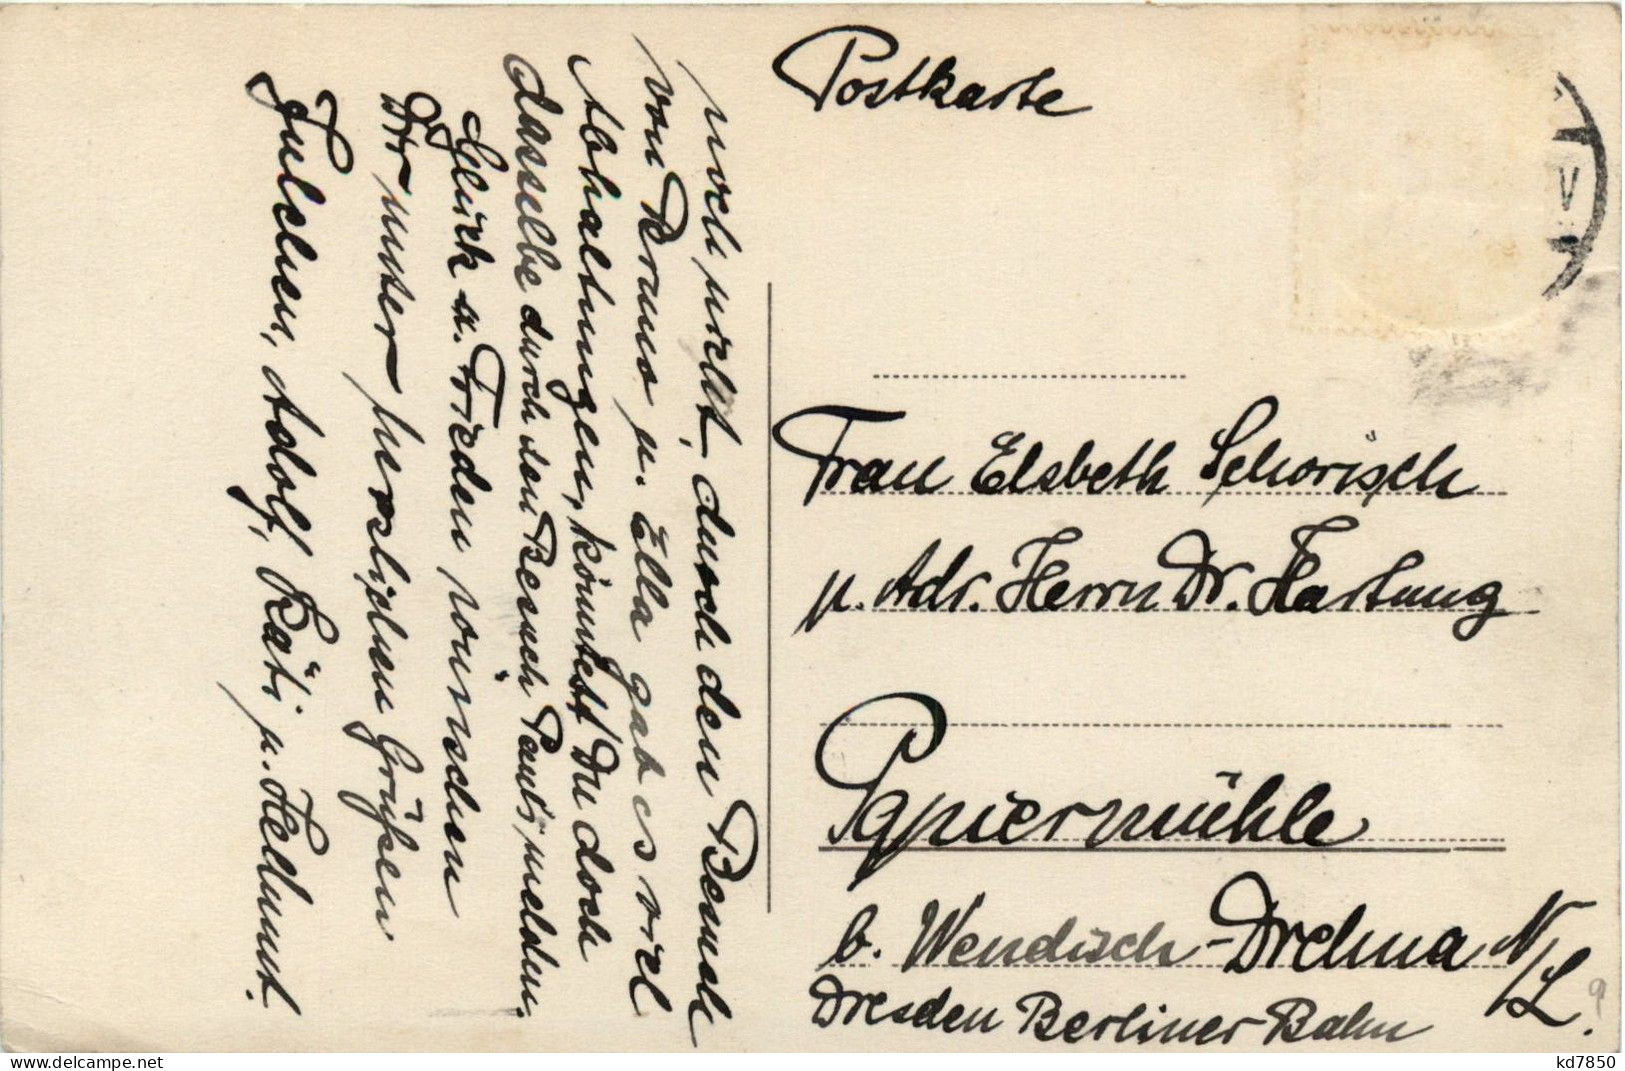 Postkarte
noch nicht, durch den Besuch
von Bruno u. Ella gab es viel
Abhaltungen, könntest Du doch
dasselbe durch den Besuch Pauls, melden.
Glück u. Frieden wünschen
Dir unser herzlichen Grüßen
Julchen, Adolf, Käti u. Helmut.
Frau Elsbeth Schorisch
p. Adr. Herrn Dr. Hartung
Papiermühle
b. Wendisch-Drehna N/L.
Dresden Berliner Bahn
V
kd7850